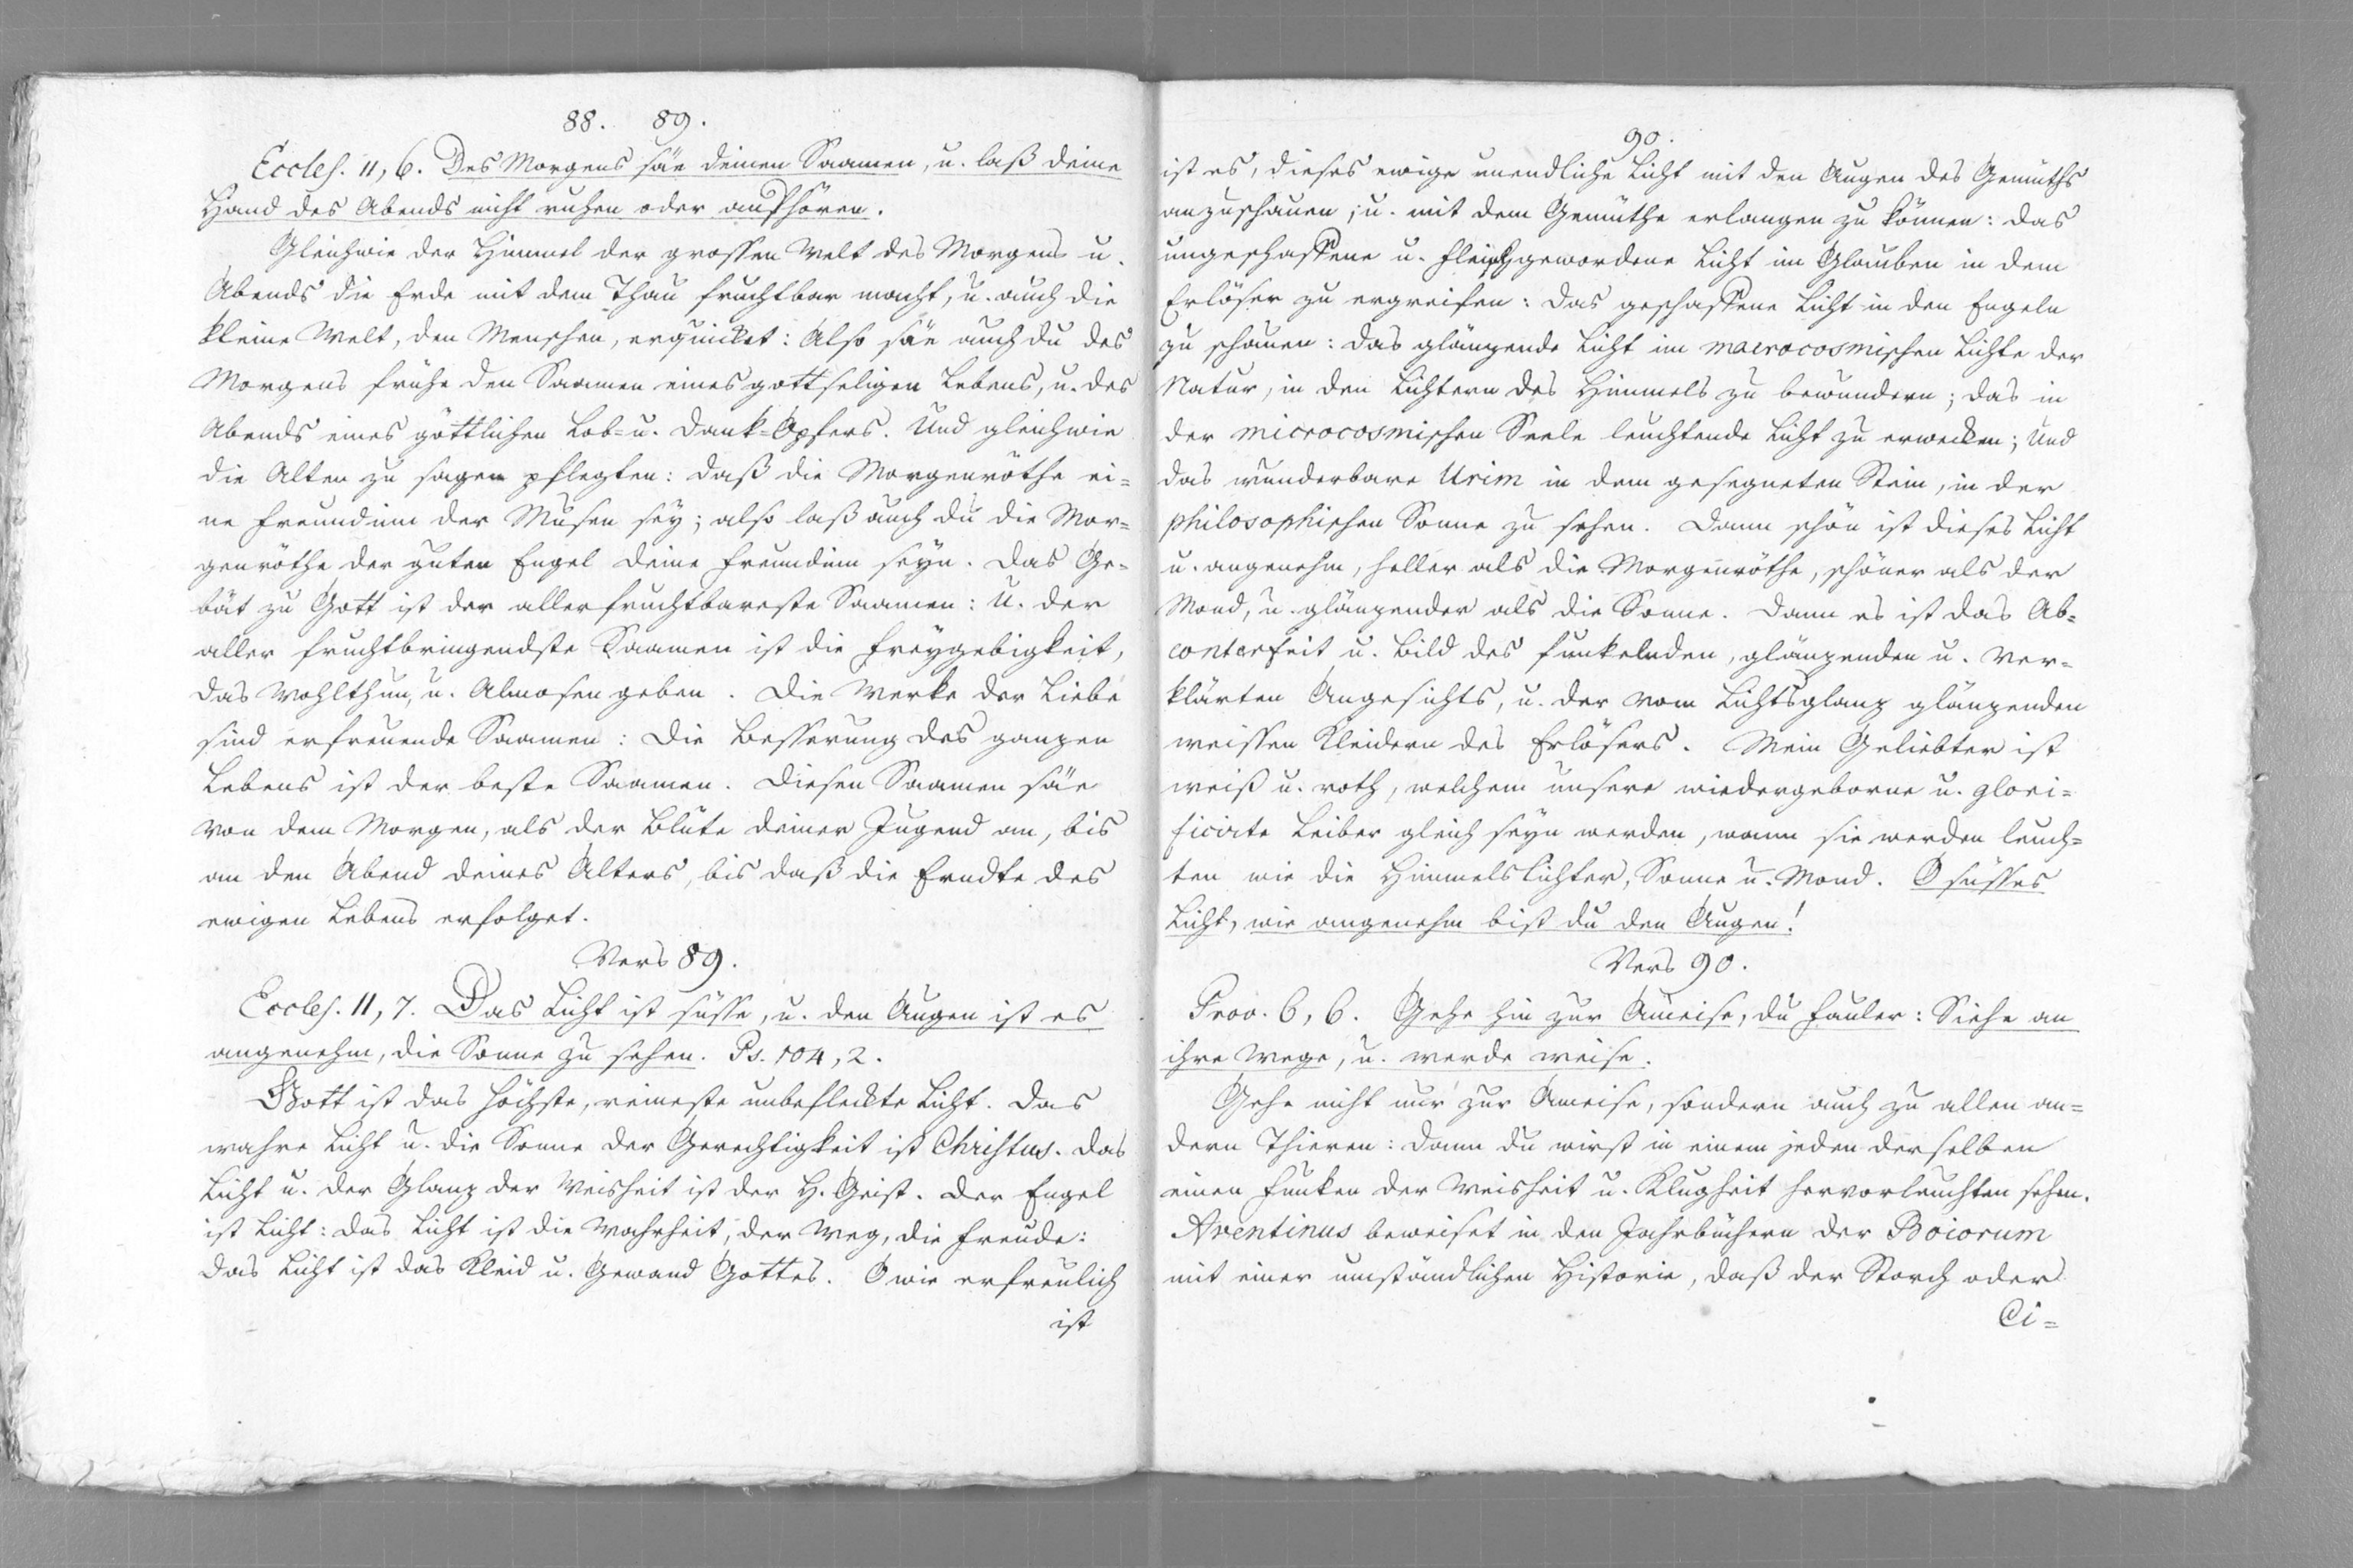 88. 89.
Eccles. 11, 6. Des Morgens säe deinen Saamen, u. laß deine
Hand des Abends nicht ruhen oder aufhören.
Gleichwie der Himmel der grossen Welt des Morgens u.
Abends die Erde mit dem Thau fruchtbar macht, u. auch die
kleine Welt, den Menschen, erquicket: Also säe auch du des
Morgens frühe den Saamen eines gottseligen Lebens, u. des
Abends eines göttlichen Lob= u. Dank=Opfers. Und gleichwie
die Alten zu sagen pflegten: daß die Morgenröthe ei=
ne Freundinn der Musen sey; also laß auch du die Mor=
genröthe der guten Engel deine Freundinn seyn. Das Ge=
bät zu Gott ist der allerfruchtbareste Saamen: U. der
aller fruchtbringendste Saamen ist die Freygebigkeit,
das Wohlthun, u. Almosen geben. Die Werke der Liebe
sind erfreuende Saamen: Die Besserung des ganzen
Lebens ist der beste Saamen. Diesen Saamen säe
von dem Morgen, als der Blüte deiner Jugend an, bis
an den Abend deines Alters, bis daß die Erndte des
ewigen Lebens erfolget.
Vers 89.
Eccles. 11, 7. Das Licht ist süsse, u. den Augen ist es
angenehm, die Sonne zu sehen. Ps. 104, 2.
Gott ist das höchste, reineste unbefleckte Licht. Das
wahre Licht u. die Sonne der Gerechtigkeit ist Christus. Das
Licht u. der Glanz der Weisheit ist der H. Geist. Der Engel
ist Licht: das Licht ist die Wahrheit, der Weg, die Freude:
das Licht ist das Kleid u. Gewand Gottes. O wie erfreulich
ist
90.
ist es, dieses ewige unendliche Licht mit den Augen des Gemüths
anzuschauen, u. mit dem Gemüthe erlangen zu können: das
ungeschaffene u. fleischgewordene Licht im Glauben in dem
Erlöser zu ergreifen: das geschaffene Licht in den Engeln
zu schauen: das glänzende Licht im macrocosmischen Lichte der
Natur, in den Lichtern des Himmels zu bewundern; das in
der microcosmischen Seele leuchtende Licht zu erwecken; Und
das wunderbare Urim in dem gesegneten Stein, in der
philosophischen Sonne zu sehen. Dann schön ist dieses Licht
u. angenehm, heller als die Morgenröthe, schöner als der
Mond, u. glänzender als die Sonne. Dann es ist das Ab=
conterfeit u. Bild des funkelnden, glänzenden u. ver=
klärten Angesichts, u. der vom Lichtsglanz glänzenden
weissen Kleidern des Erlösers. Mein Geliebter ist
weiß u. roth, welchem unsere wiedergeborne u. glori=
ficirte Leiber gleich seyn werden, wann sie werden leuch=
ten wie die Himmelslichter, Sonne u. Mond. O süsses
Licht, wie angenehm bist du den Augen!
Vers 90.
Prov. 6, 6. Gehe hin zur Ameise, du Fauler: Siehe an
ihre Wege, u. werde weise.
Gehe nicht nur zur Ameise, sondern auch zu allen an=
dern Thieren: dann du wirst in einem jeden derselben
einen Funken der Weisheit u. Klugheit hervorleuchten sehen.
Aventinus beweiset in den Jahrbüchern der Boiorum
mit einer umständlichen Historie, daß der Storch oder
Ci=